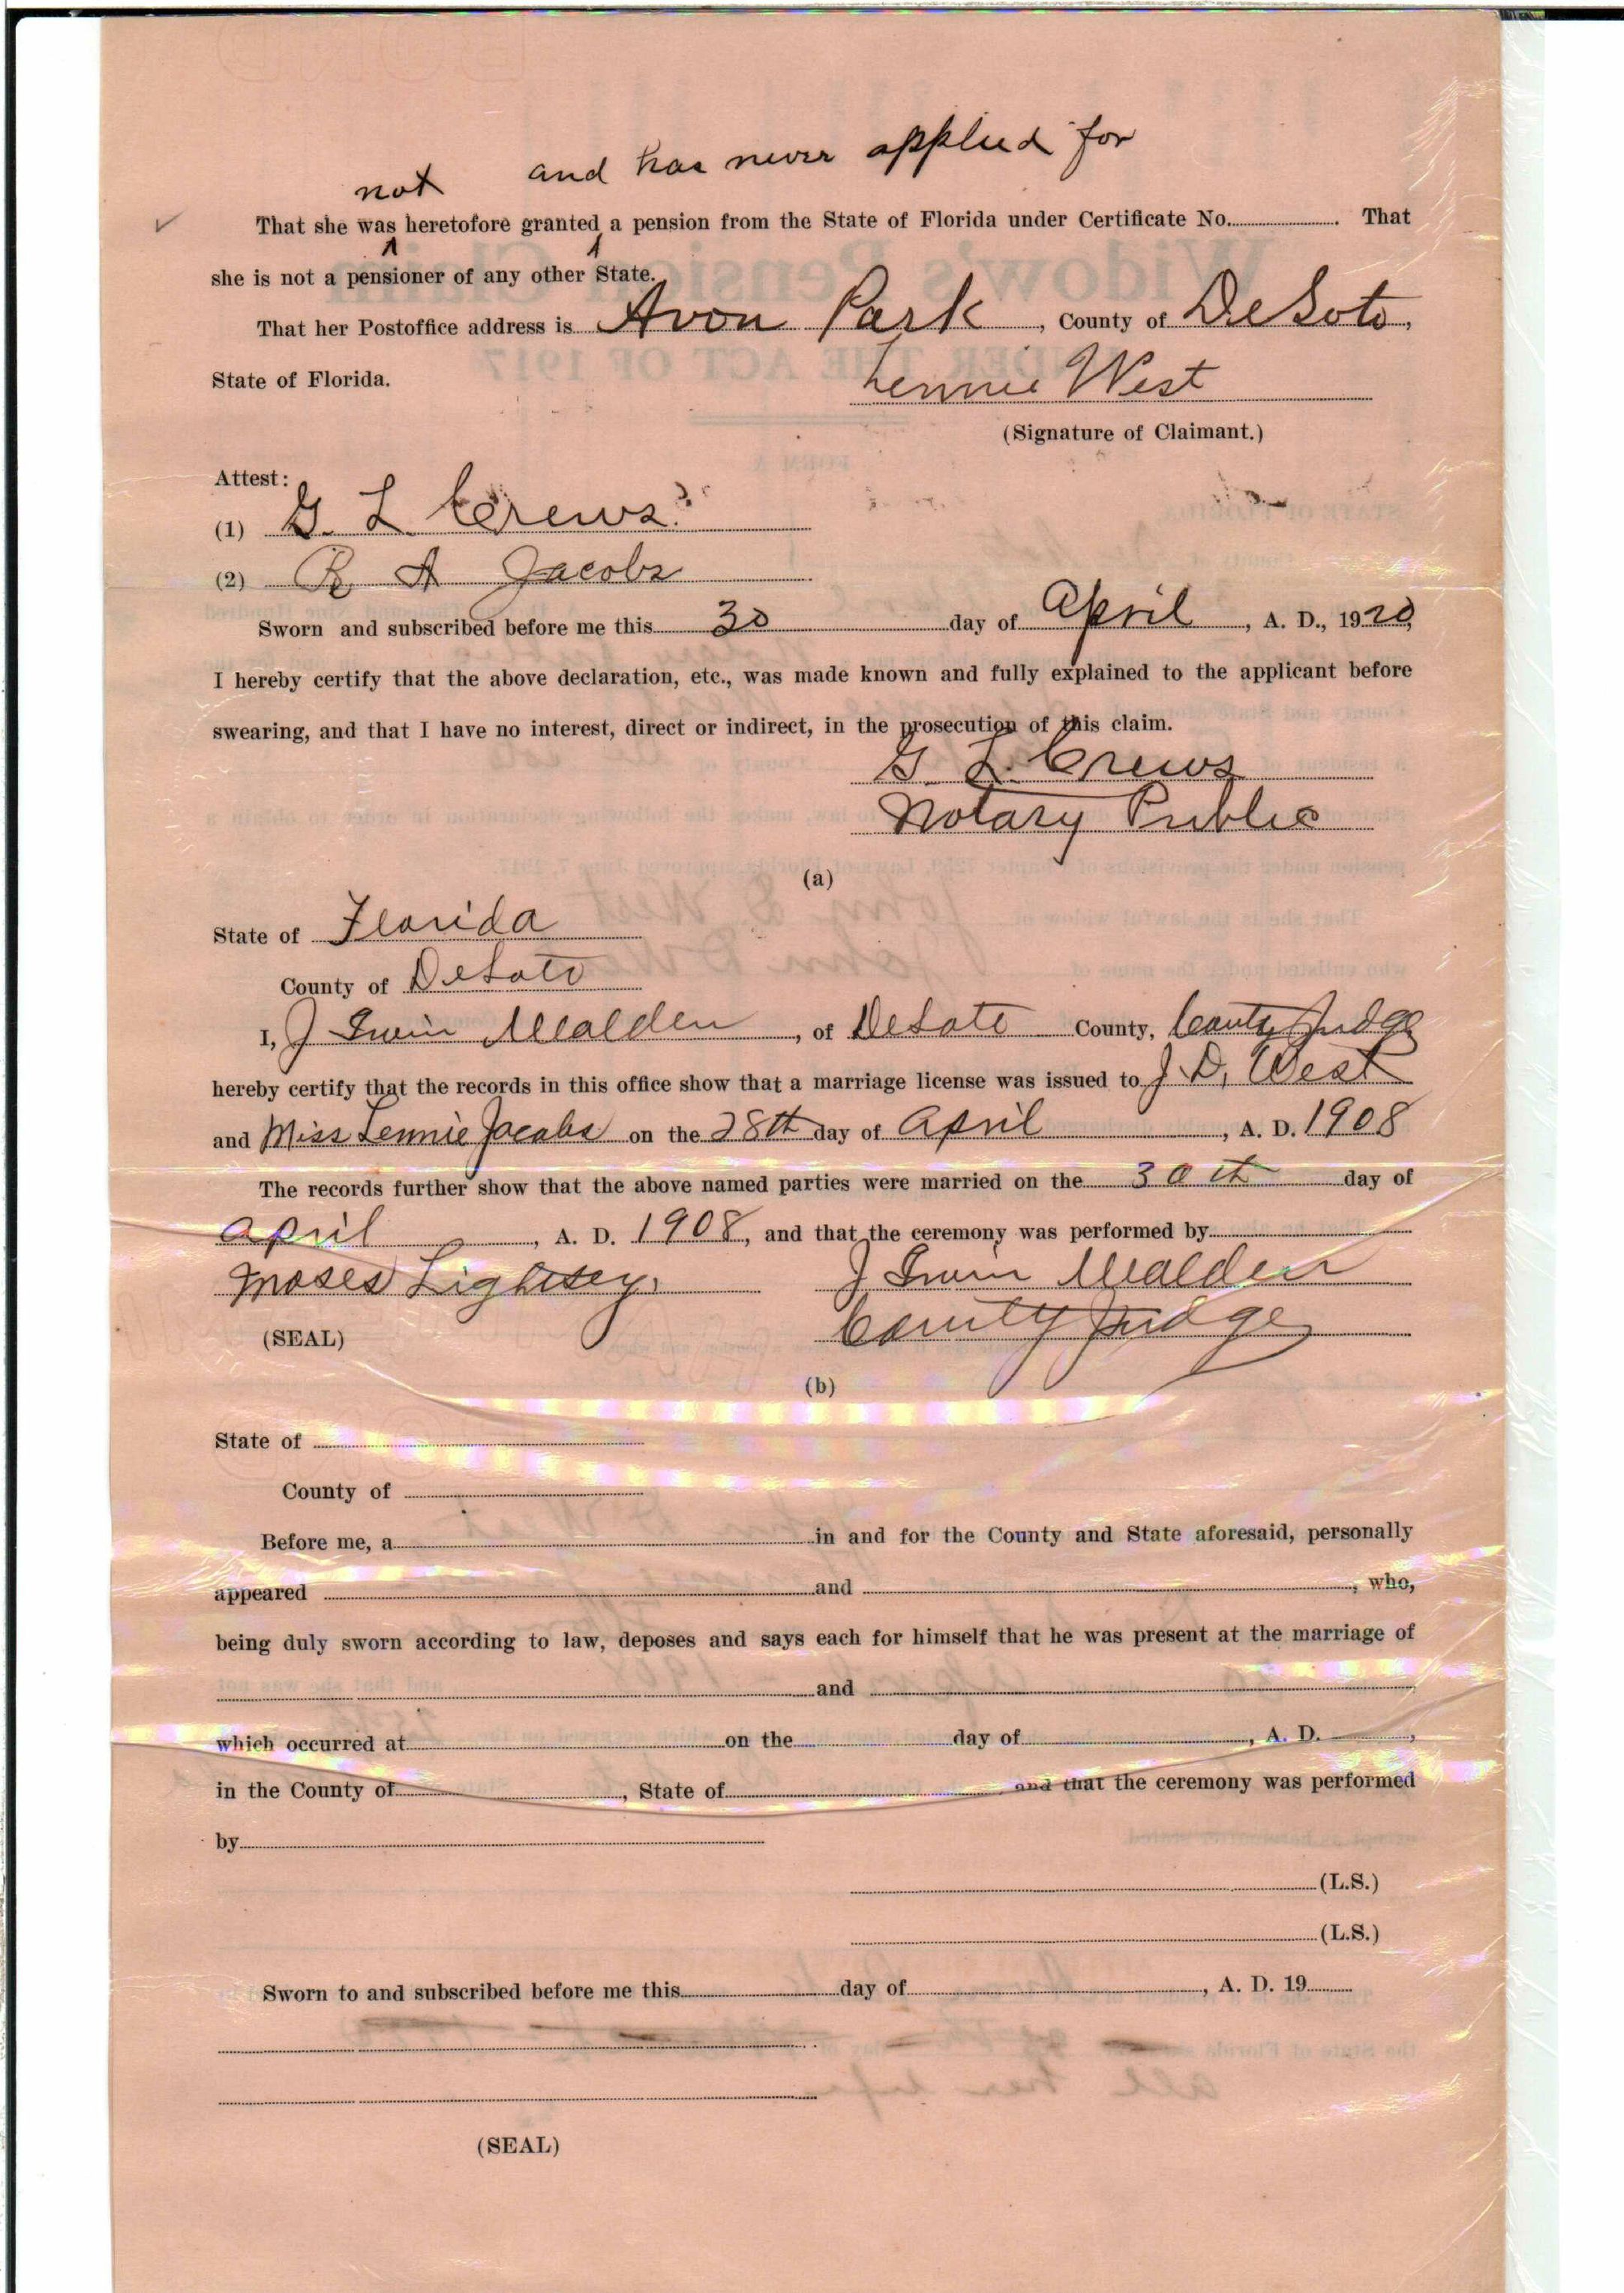 not and has never applied for
That she was heretofore granted a pension from the State of Florida under Certificate No. That
she is not a pensioner of any other State.
That her Postoffice address is Avon Park, County of DeSoto,
State of Florida. Lennie West
(Signature of Claimant.)
Attest:
(1) G. L Crews
(2) R A Jacobs
Sworn and subscribed before me this 30 day of April, A. D., 1920,
I hereby certify that the above declaration, etc., was made known and fully explained to the applicant before
swearing, and that I have no interest, direct or indirect, in the prosecution of this claim.
G. L. Crews
Notary Public
(a)
State of Florida
County of DeSoto
I, J Irwin Walden, of DeSoto County, County Judge
hereby certify that the records in this office show that a marriage license was issued to J. D. West
and Miss Lennie Jacobs on the 28th day of April, A. D. 1908
The records further show that the above named parties were married on the 30th day of
April, A. D. 1908, and that the ceremony was performed by
Moses Lightsey. J Irwin Walden
(SEAL) County Judge
(b)
State of
County of
Before me, a in and for the County and State aforesaid, personally
appeared and , who,
being duly sworn according to law, deposes and says each for himself that he was present at the marriage of
and
which occurred at on the day of , A. D. ,
in the County of , State of , and that the ceremony was performed
by
(L.S.)
(L.S.)
Sworn to and subscribed before me this day of , A. D. 19
(SEAL)